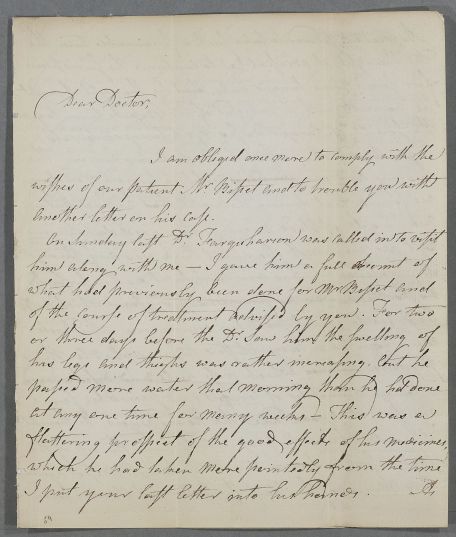 Dear Doctor,
I am obliged once more to comply with the
wishes of our patient Mr Bisset and to trouble you with
another letter on his case.
On Sunday last Dr. Farquharson was called in to visit
him along with me — I gave him a full account of
what had previously been done for Mr Bisset and
of the course of treatment advised by you. For two
or three days before the Dr. saw him the swelling of
his legs and thighs was rather increasing, but he
passed more water that morning than he had done
at any one time for many weeks — This was a
flattering prospect of the good effects of his medicines,
which he had taken more pointedly from the time
I put your last letter into his hands.